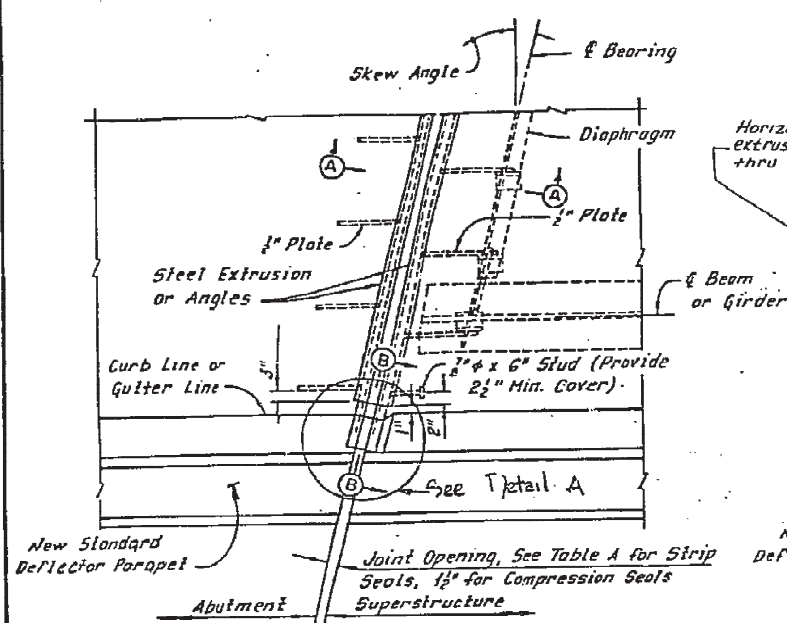 Skew Angle
℄ Bearing
Diaphragm
Horiz
extrus
thru
A
A
½" Plate
½" Plate
Steel Extrusion
or Angles
℄ Beam
or Girder
B
Curb Line or
Gutter Line
3"
" φ x 6" Stud (Provide
2½" Min. Cover).
1"
2"
B
See Detail A
New Standard
Deflector Parapet
Def
Joint Opening, See Table A for Strip
Seals, 1½" for Compression Seals
Abutment
Superstructure